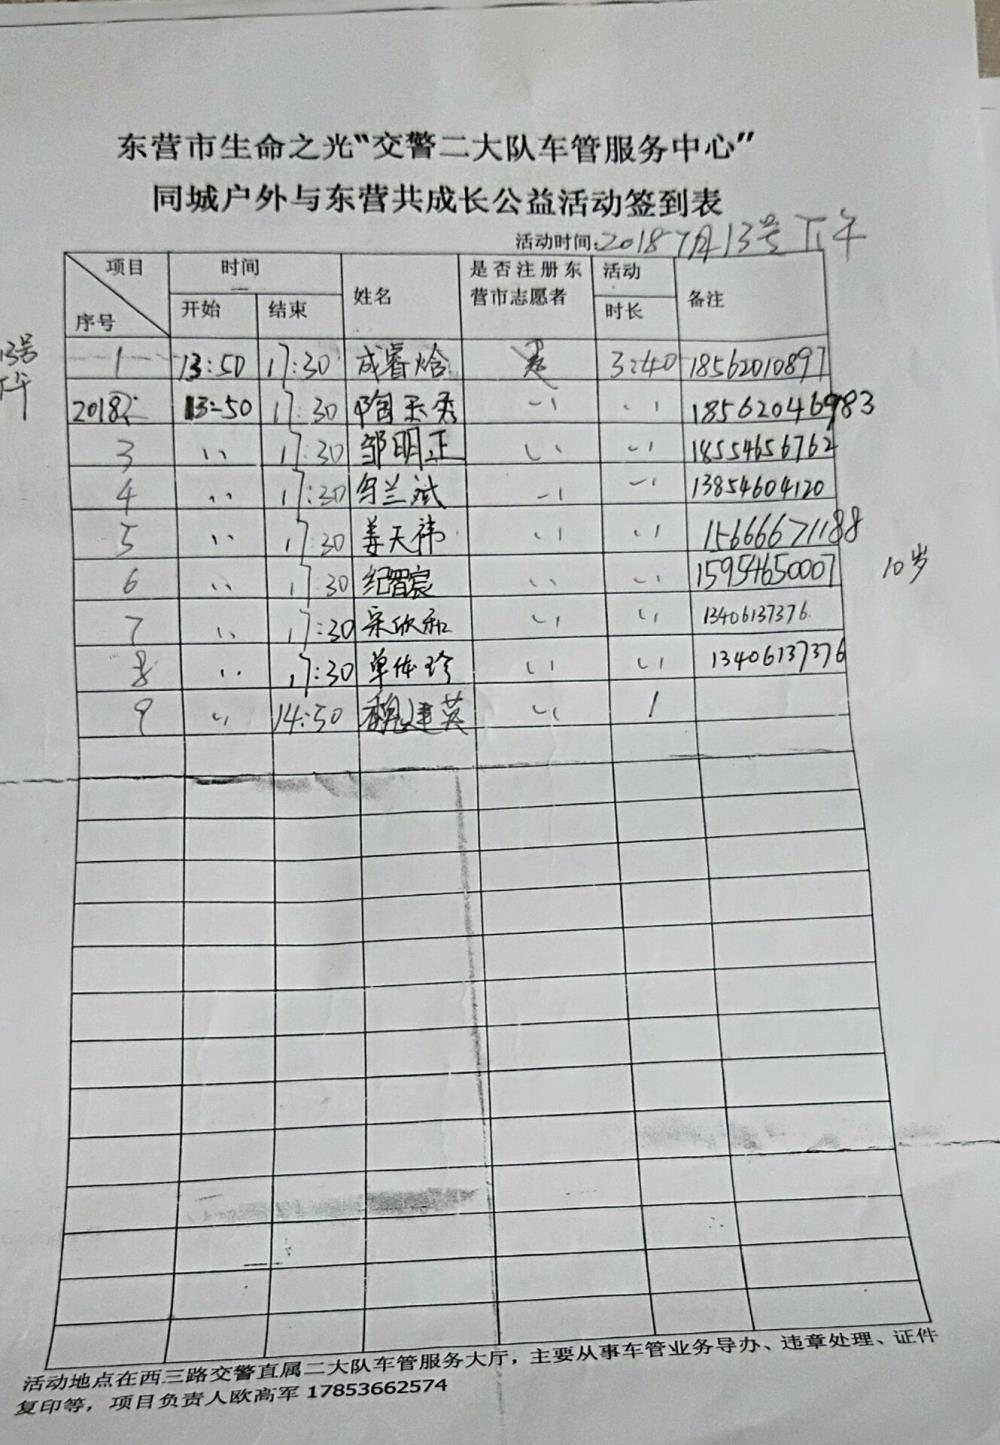 东营市生命之光“交警二大队车管服务中心”
同城户外与东营共成长公益活动签到表
活动时间:2018 7月13号下午
项目 时间 姓名 是否注册东营市志愿者 活动时长 备注
序号 开始 结束
13号
下午
1 13:50 17:30 成睿焓 是 3:40 18562010897
2018 13:50 17:30 陶玉秀 〃 〃 18562046983
3 〃 17:30 邹明正 〃 〃 18554656762
4 〃 17:30 兰斌 〃 〃 13854604120
5 〃 17:30 姜天祎 〃 〃 15666671188
6 〃 17:30 纪智宸 〃 〃 15954650007 10岁
7 〃 17:30 宋欣和 〃 〃 13406137376
8 〃 17:30 单体珍 〃 〃 13406137376
9 〃 14:50 魏建英 〃 1
活动地点在西三路交警直属二大队车管服务大厅，主要从事车管业务导办、违章处理、证件
复印等，项目负责人欧高军 17853662574